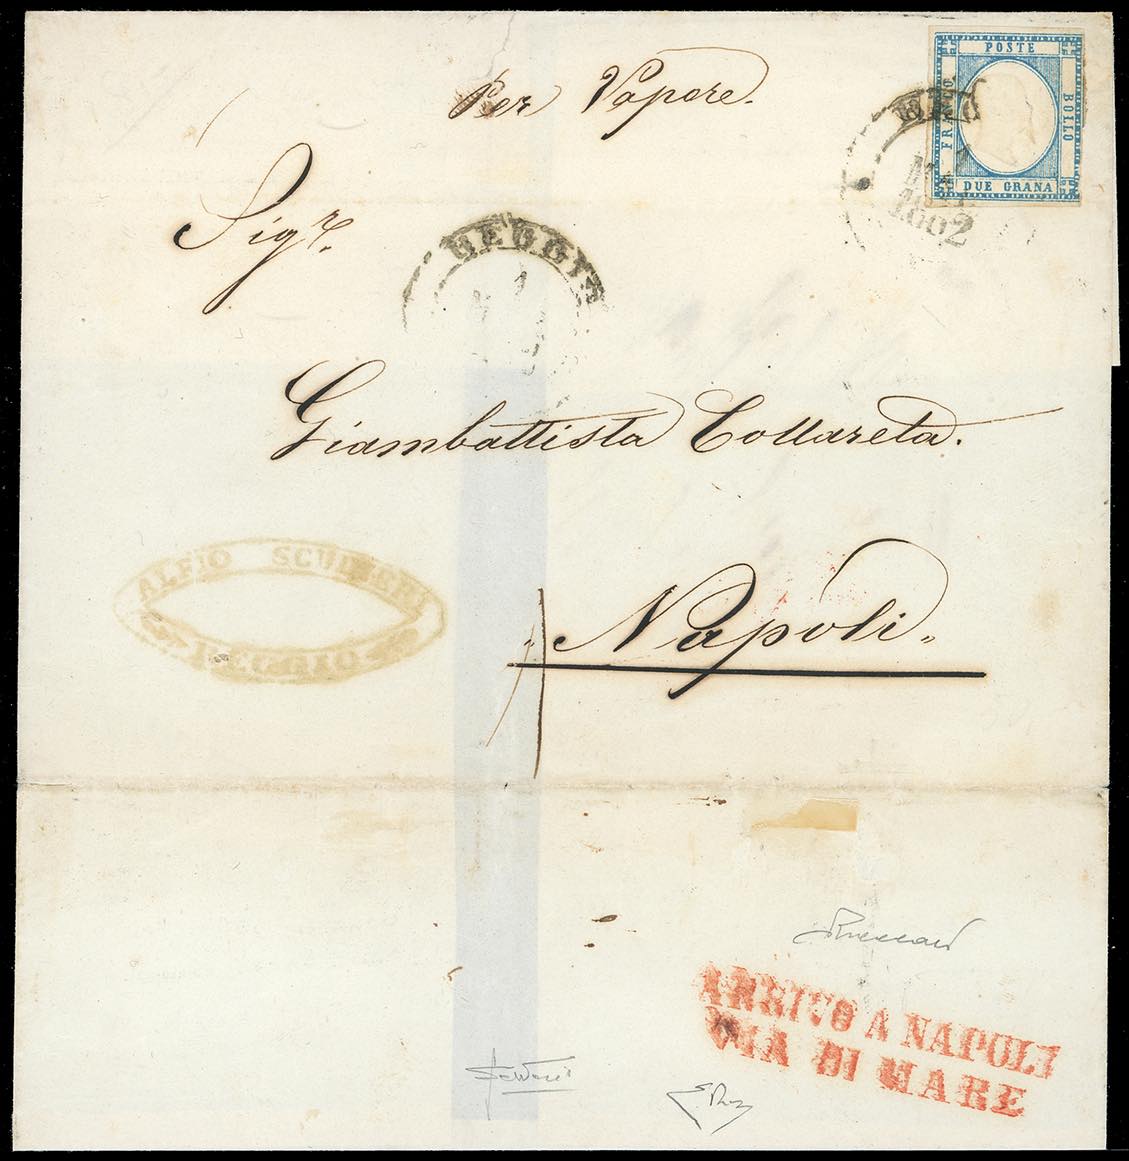 POSTE
FRANCO
BOLLO
DUE GRANA
Per Vapore.
1
1862
Sigr.
REGGIO
1
Giambattista Collareta.
ALFIO SCUDERI
REGGIO
Napoli
ARRIVO A NAPOLI
VIA DI MARE